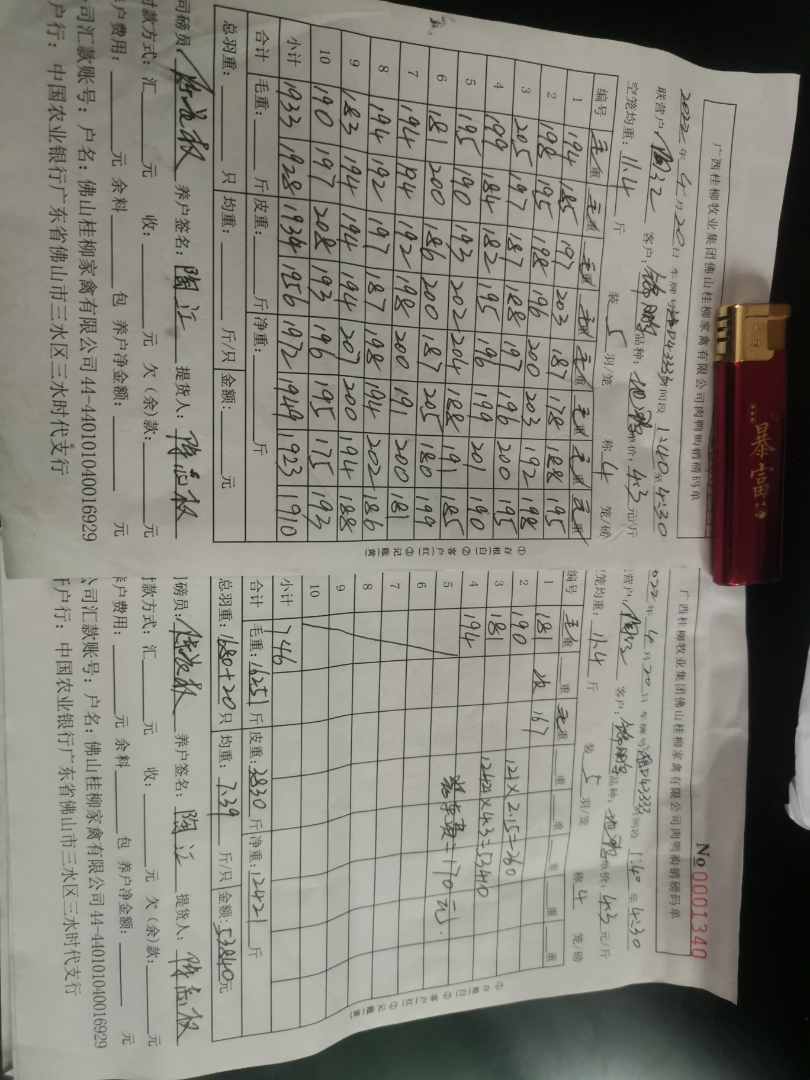 广西桂柳牧业集团佛山桂柳家禽有限公司肉鸭购销磅码单
2022年4月20日 车牌号 D43333 时间段 1:40至4:30
联营户:陶江 客户: 品种: 单价:4.3元/斤
空笼均重:11.4斤 装5羽/笼 称4笼/磅
编号 毛重 毛重 毛重 毛重 毛重 毛重 毛重 毛重
1 194 185 197 203 187 178 188 195
2 198 195 188 196 200 203 192 198
3 205 197 187 188 197 196 200 195
4 199 184 182 195 196 199 201 190
5 195 190 193 202 204 188 191 185
6 181 200 186 200 187 205 180 199
7 194 194 192 198 200 191 200 181
8 194 192 197 187 198 194 202 186
9 183 194 194 194 207 200 194 188
10 190 197 208 193 196 195 175 193
小计 1933 1928 1934 1956 1972 1949 1923 1910
合计 毛重:斤 皮重:斤 净重:斤
总羽重:只 均重:斤/只 金额:元
司磅员: 养户签名:陶江 提货人:
付款方式:汇 元 收:元 欠(余)款:元
户费用:元 余料 包 养户净金额:元
公司汇款账号:户名:佛山桂柳家禽有限公司 44-440101040016929
户行:中国农业银行广东省佛山市三水区三水时代支行
①存根(白) ②客户(红) ③记账(黄)
广西桂柳牧业集团佛山桂柳家禽有限公司肉鸭购销磅码单
No 0001340
2022年4月20日 车牌号 D43333 时间段 1:40至4:30
联营户:陶江 客户: 品种: 单价:4.3元/斤
笼均重:11.4斤 装5羽/笼 称4笼/磅
编号 毛重 皮重 毛重 重 重 重 重 重
1 181 167
2 190
3 181
4 194
5
6
7
8
9
10
121×2.15=260
12421×4.3=53410
=170元
小计 746
合计 毛重:16251斤 皮重:3830斤 净重:12421斤
总羽重:1680+20只 均重:7.39斤/只 金额:53840元
司磅员: 养户签名:陶江 提货人:
付款方式:汇 元 收:元 欠(余)款:元
户费用:元 余料 包 养户净金额:元
公司汇款账号:户名:佛山桂柳家禽有限公司 44-440101040016929
户行:中国农业银行广东省佛山市三水区三水时代支行
①存根(白) ②客户(红) ③记账(黄)
暴富